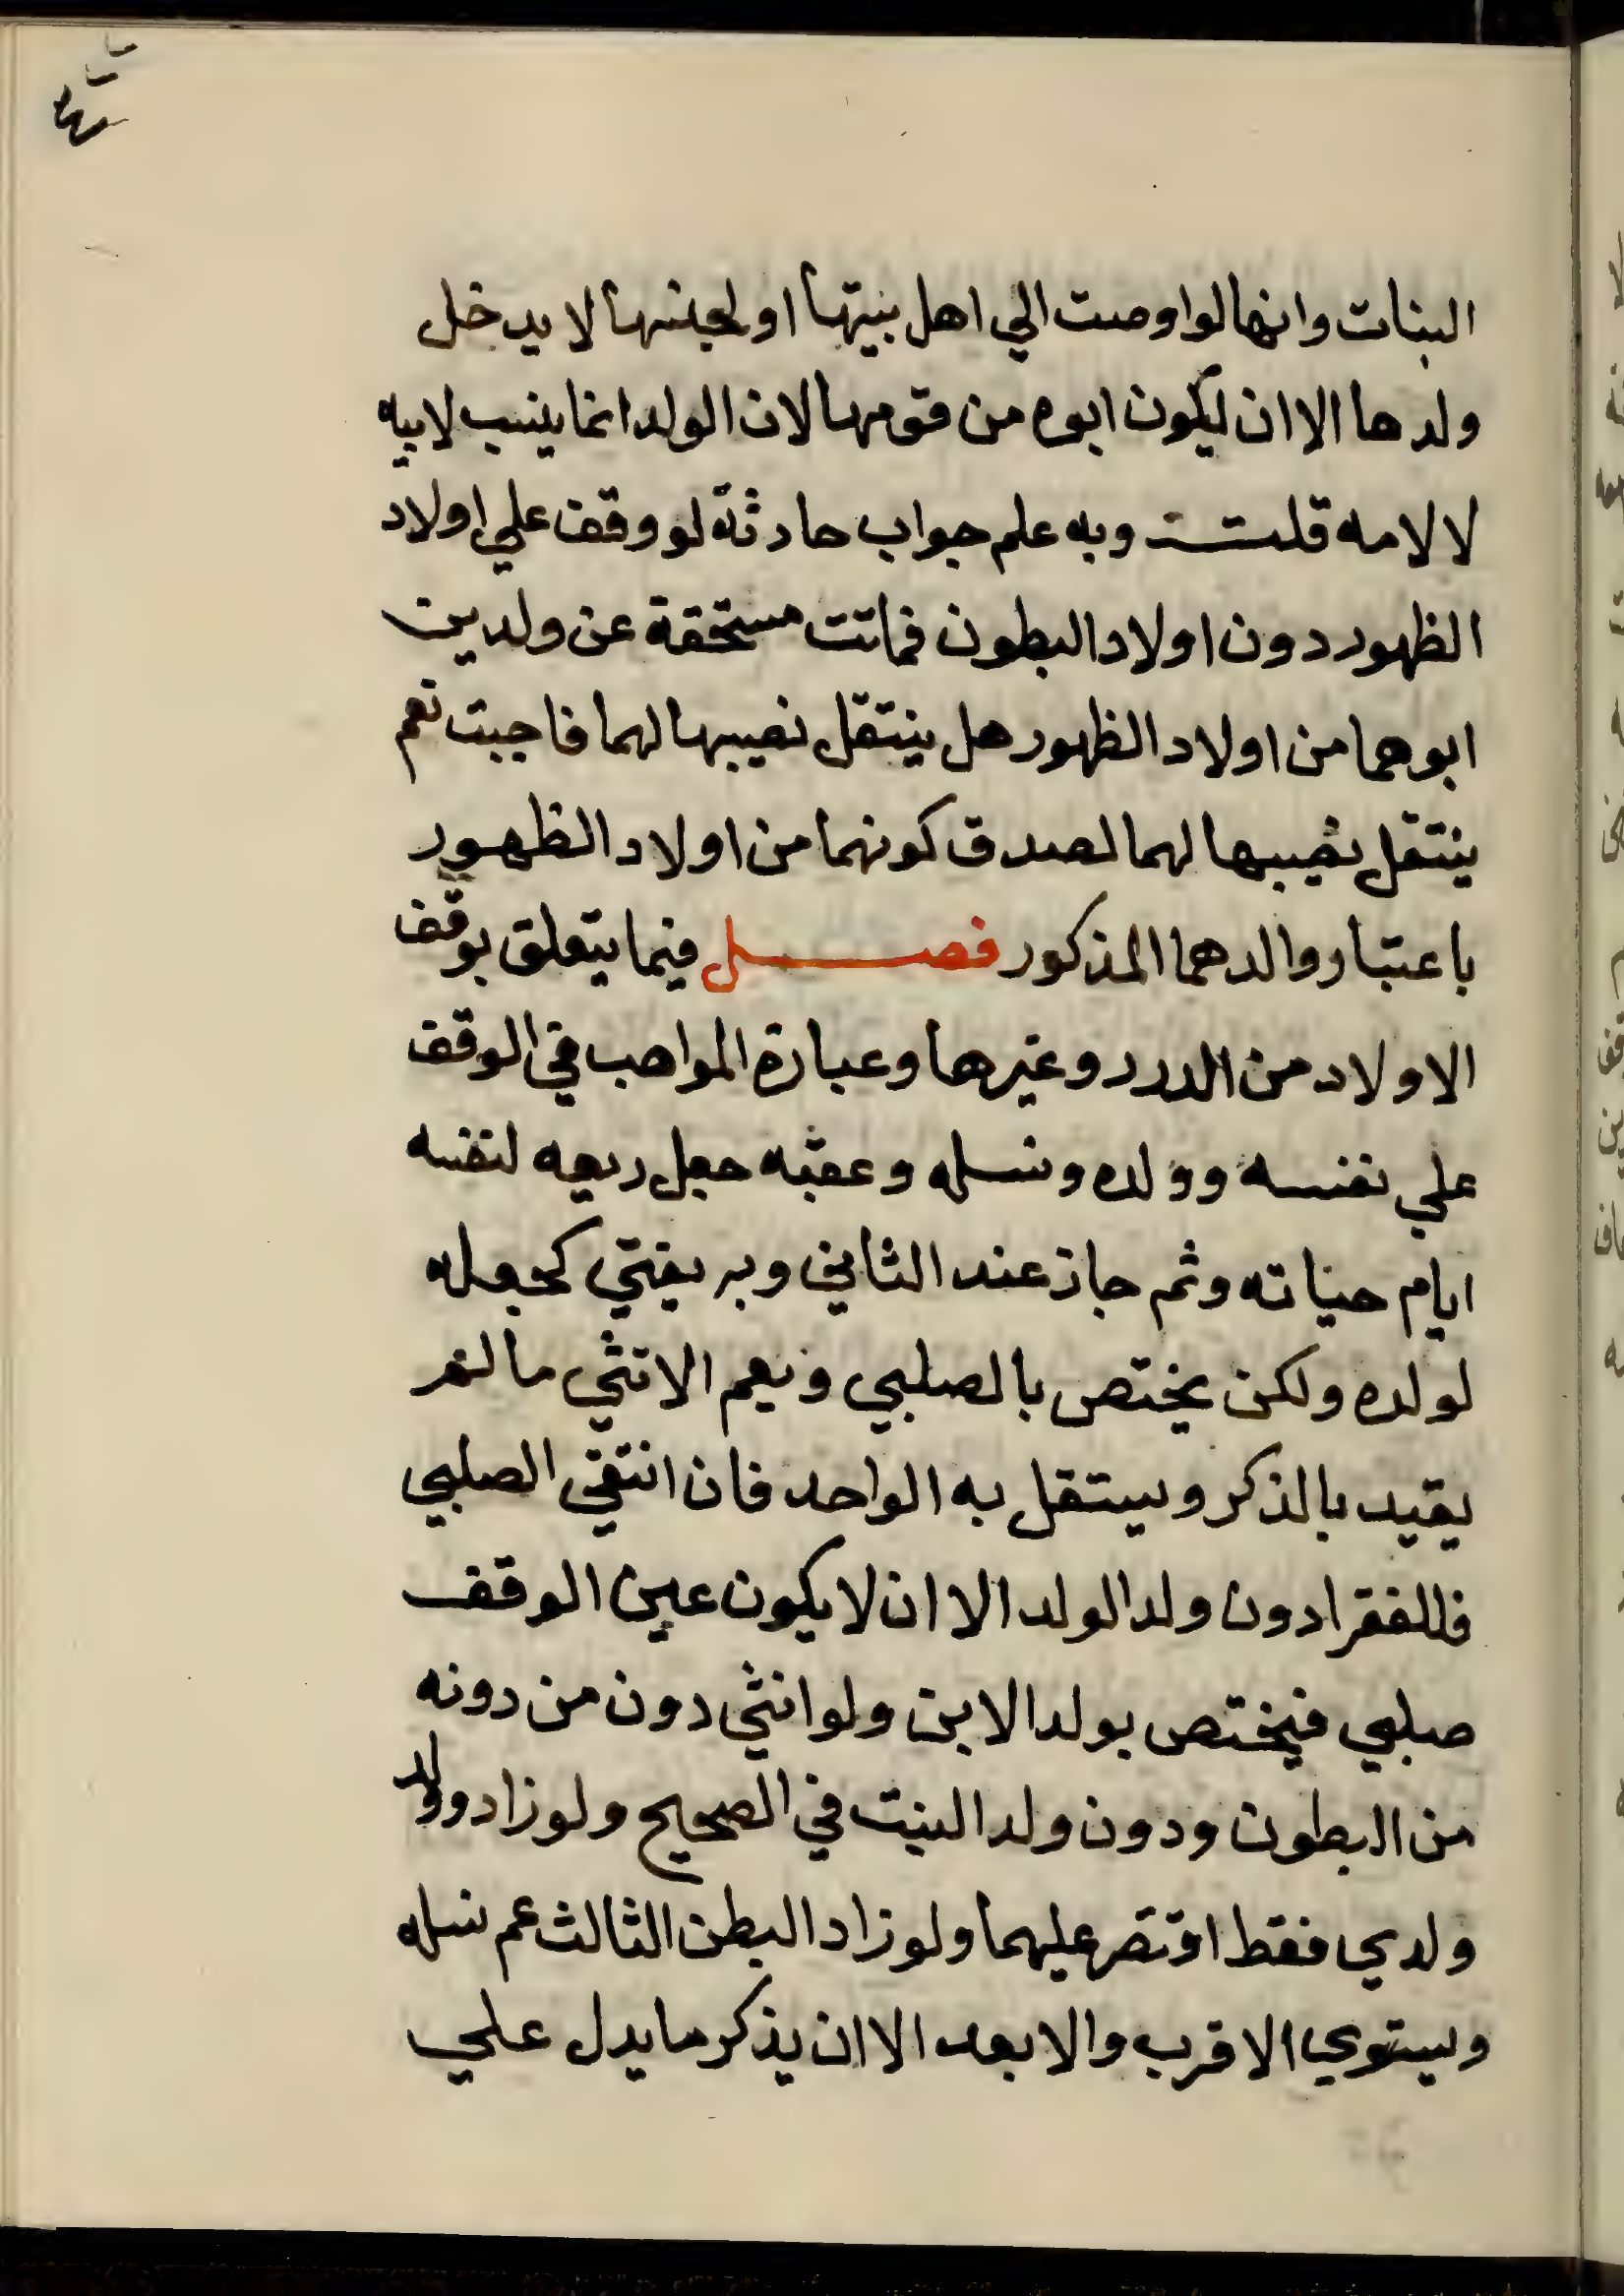 البنات وانها لو اوصت الي اهل بيتها او لجنسها لا يدخل
ولدها الا ان ليكون ابوه من قومها لان الولد انما ينسب لابيه
لا لامه قلت وبه علم جواب حادثة لو وقف علي اولاد
الظهور دون اولاد البطون فماتت مستحقة عن ولدين
ابوهما من اولاد الظهور هل ينتقل نصيبها لهما فاجبت نعم
ينتقل نصيبها لهما لصدق كونهما من اولاد الظهور
باعتبار والدهما المذكور فصل فيما يتعلق بوقف
الاولاد من الدرر وغيرها وعبارة المواهب في الوقف
علي نفسه وولده ونسله وعقبه جعل ريعه لنفسه
ايام حياته وثم جاز عند الثاني وبه يفتي كجعله
لولده ولكن يختص بالصلبي ويعم الانثي ما لم
يقيد بالذكر ويستقل به الواحد فان انتفي الصلبي
فللفقرا دون ولد الولد الا ان لا يكون عين الوقف
صلبي فيختص بولد الابن ولو انثي دون من دونه
من البطون ودون ولد البنت في الصحيح ولو زاد وولد
ولدي فقط اقتصر عليهما ولو زاد البطن الثالث عم نسله
ويستوي الاقرب والابعد الا ان يذكر ما يدل علي